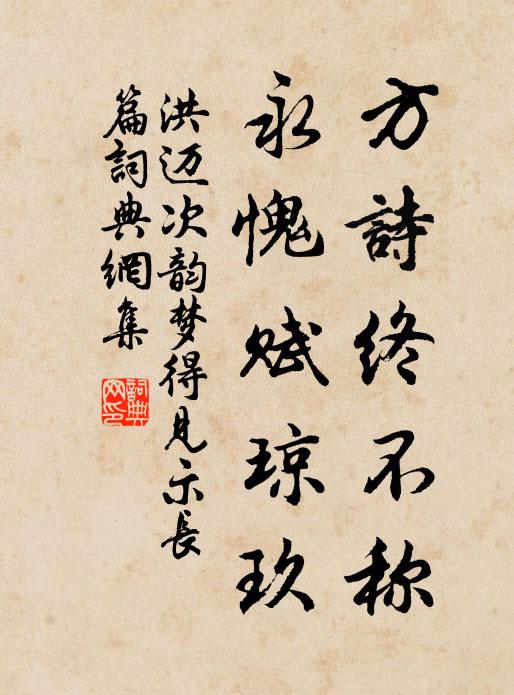 方詩终不称
永愧赋琼玖
洪迈次韵梦得見示長
篇詞典網集
詞典
网印